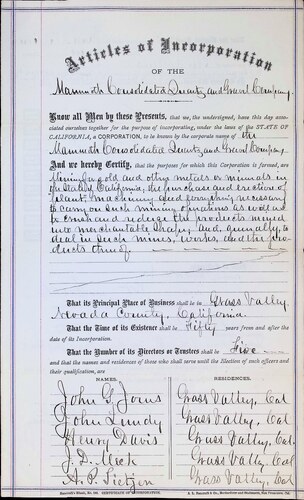 Articles of Incorporation
OF THE
Mammoth Consolidated Quartz and Gravel Company.
Know all Men by these Presents, that we, the undersigned, have this day associated ourselves together for the purpose of incorporating, under the laws of the STATE OF
CALIFORNIA, a CORPORATION, to be known by the corporate name of the
Mammoth Consolidated Quartz and Gravel Company
And we hereby Certify, that the purposes for which this Corporation is formed, are
Mining for gold and other metals or minerals in
the State of California, the purchase and erection of
plant, machinery and everything necessary
to carry on such mining operations as well as
to crush and reduce the products mined
into merchantable shape; and, generally, to
deal in such mines, works, and the pro-
ducts thereof
That its Principal Place of Business shall be in Grass Valley,
Nevada County, California
That the Time of its Existence shall be Fifty years from and after the
date of its Incorporation.
That the Number of its Directors or Trustees shall be Five
and that the names and residences of those who shall serve until the Election of such officers and
their qualification, are
NAMES: RESIDENCES.
John G. Jones Grass Valley, Cal
John Lundy Grass Valley, Cal.
Henry Davis Grass Valley, Cal.
J. D. Meek Grass Valley, Cal
Grass Valley, Cal
CERTIFICATE OF INCORPORATION.